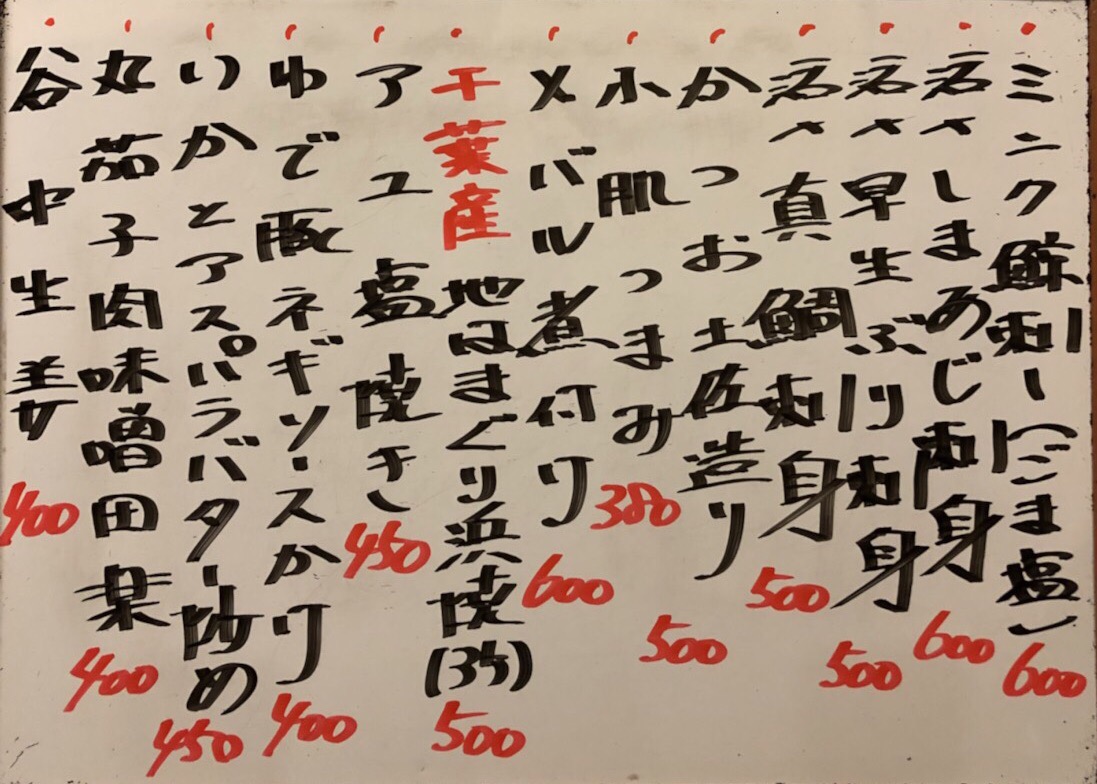 ミンク鯨刺し(ごま塩) 600
活〆しまあじ刺身 600
活〆早生ぶり刺身 500
活〆真鯛刺身 500
かつお土佐造り 500
小肌つまみ 380
メバル煮付け 600
千葉産地はまぐり浜焼(3ケ) 500
アユ塩焼き 450
ゆで豚ネギソースかけ 400
いかとアスパラバター炒め 450
丸茄子肉味噌田楽 400
谷中生姜 400